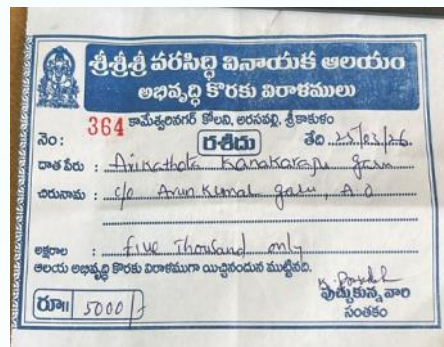 శ్రీశ్రీశ్రీ వరసిద్ధి వినాయక ఆలయం
అభివృద్ధి కొరకు విరాళములు
కామేశ్వరినగర్ కోలని, అరసవల్లి, శ్రీకాకుళం
నెం: 364 రశీదు తేది 25/03/26
దాత పేరు : Arikathota Kanakaraju garu
చిరునామ : c/o Arun Kumar garu, A.O
అక్షరాల : five Thousand only
ఆలయ అభివృద్ధి కొరకు విరాళముగా యిచ్చినందున ముట్టినది.
రూ॥ 5000/-
పుచ్చుకున్న వారి
సంతకం